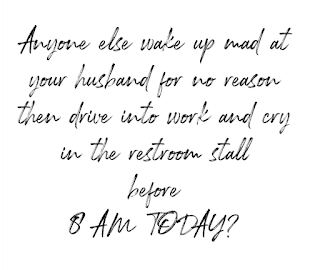 Anyone else wake up mad at
your husband for no reason
then drive into work and cry
in the restroom stall
before
8 AM TODAY?